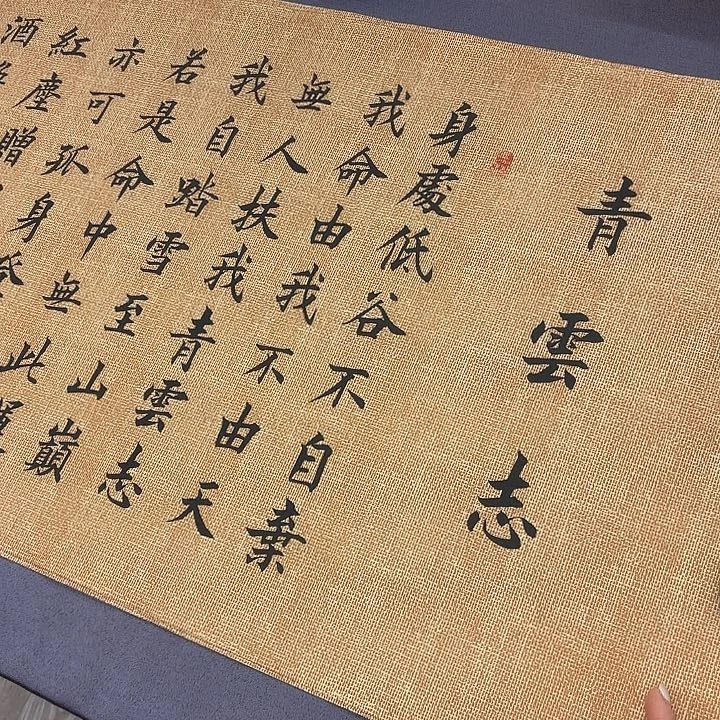 青雲志
身處低谷不自棄
我命由我不由天
無人扶我青雲志
我自踏雪至山巔
若是命中無此運
亦可孤身登
紅塵贈
酒